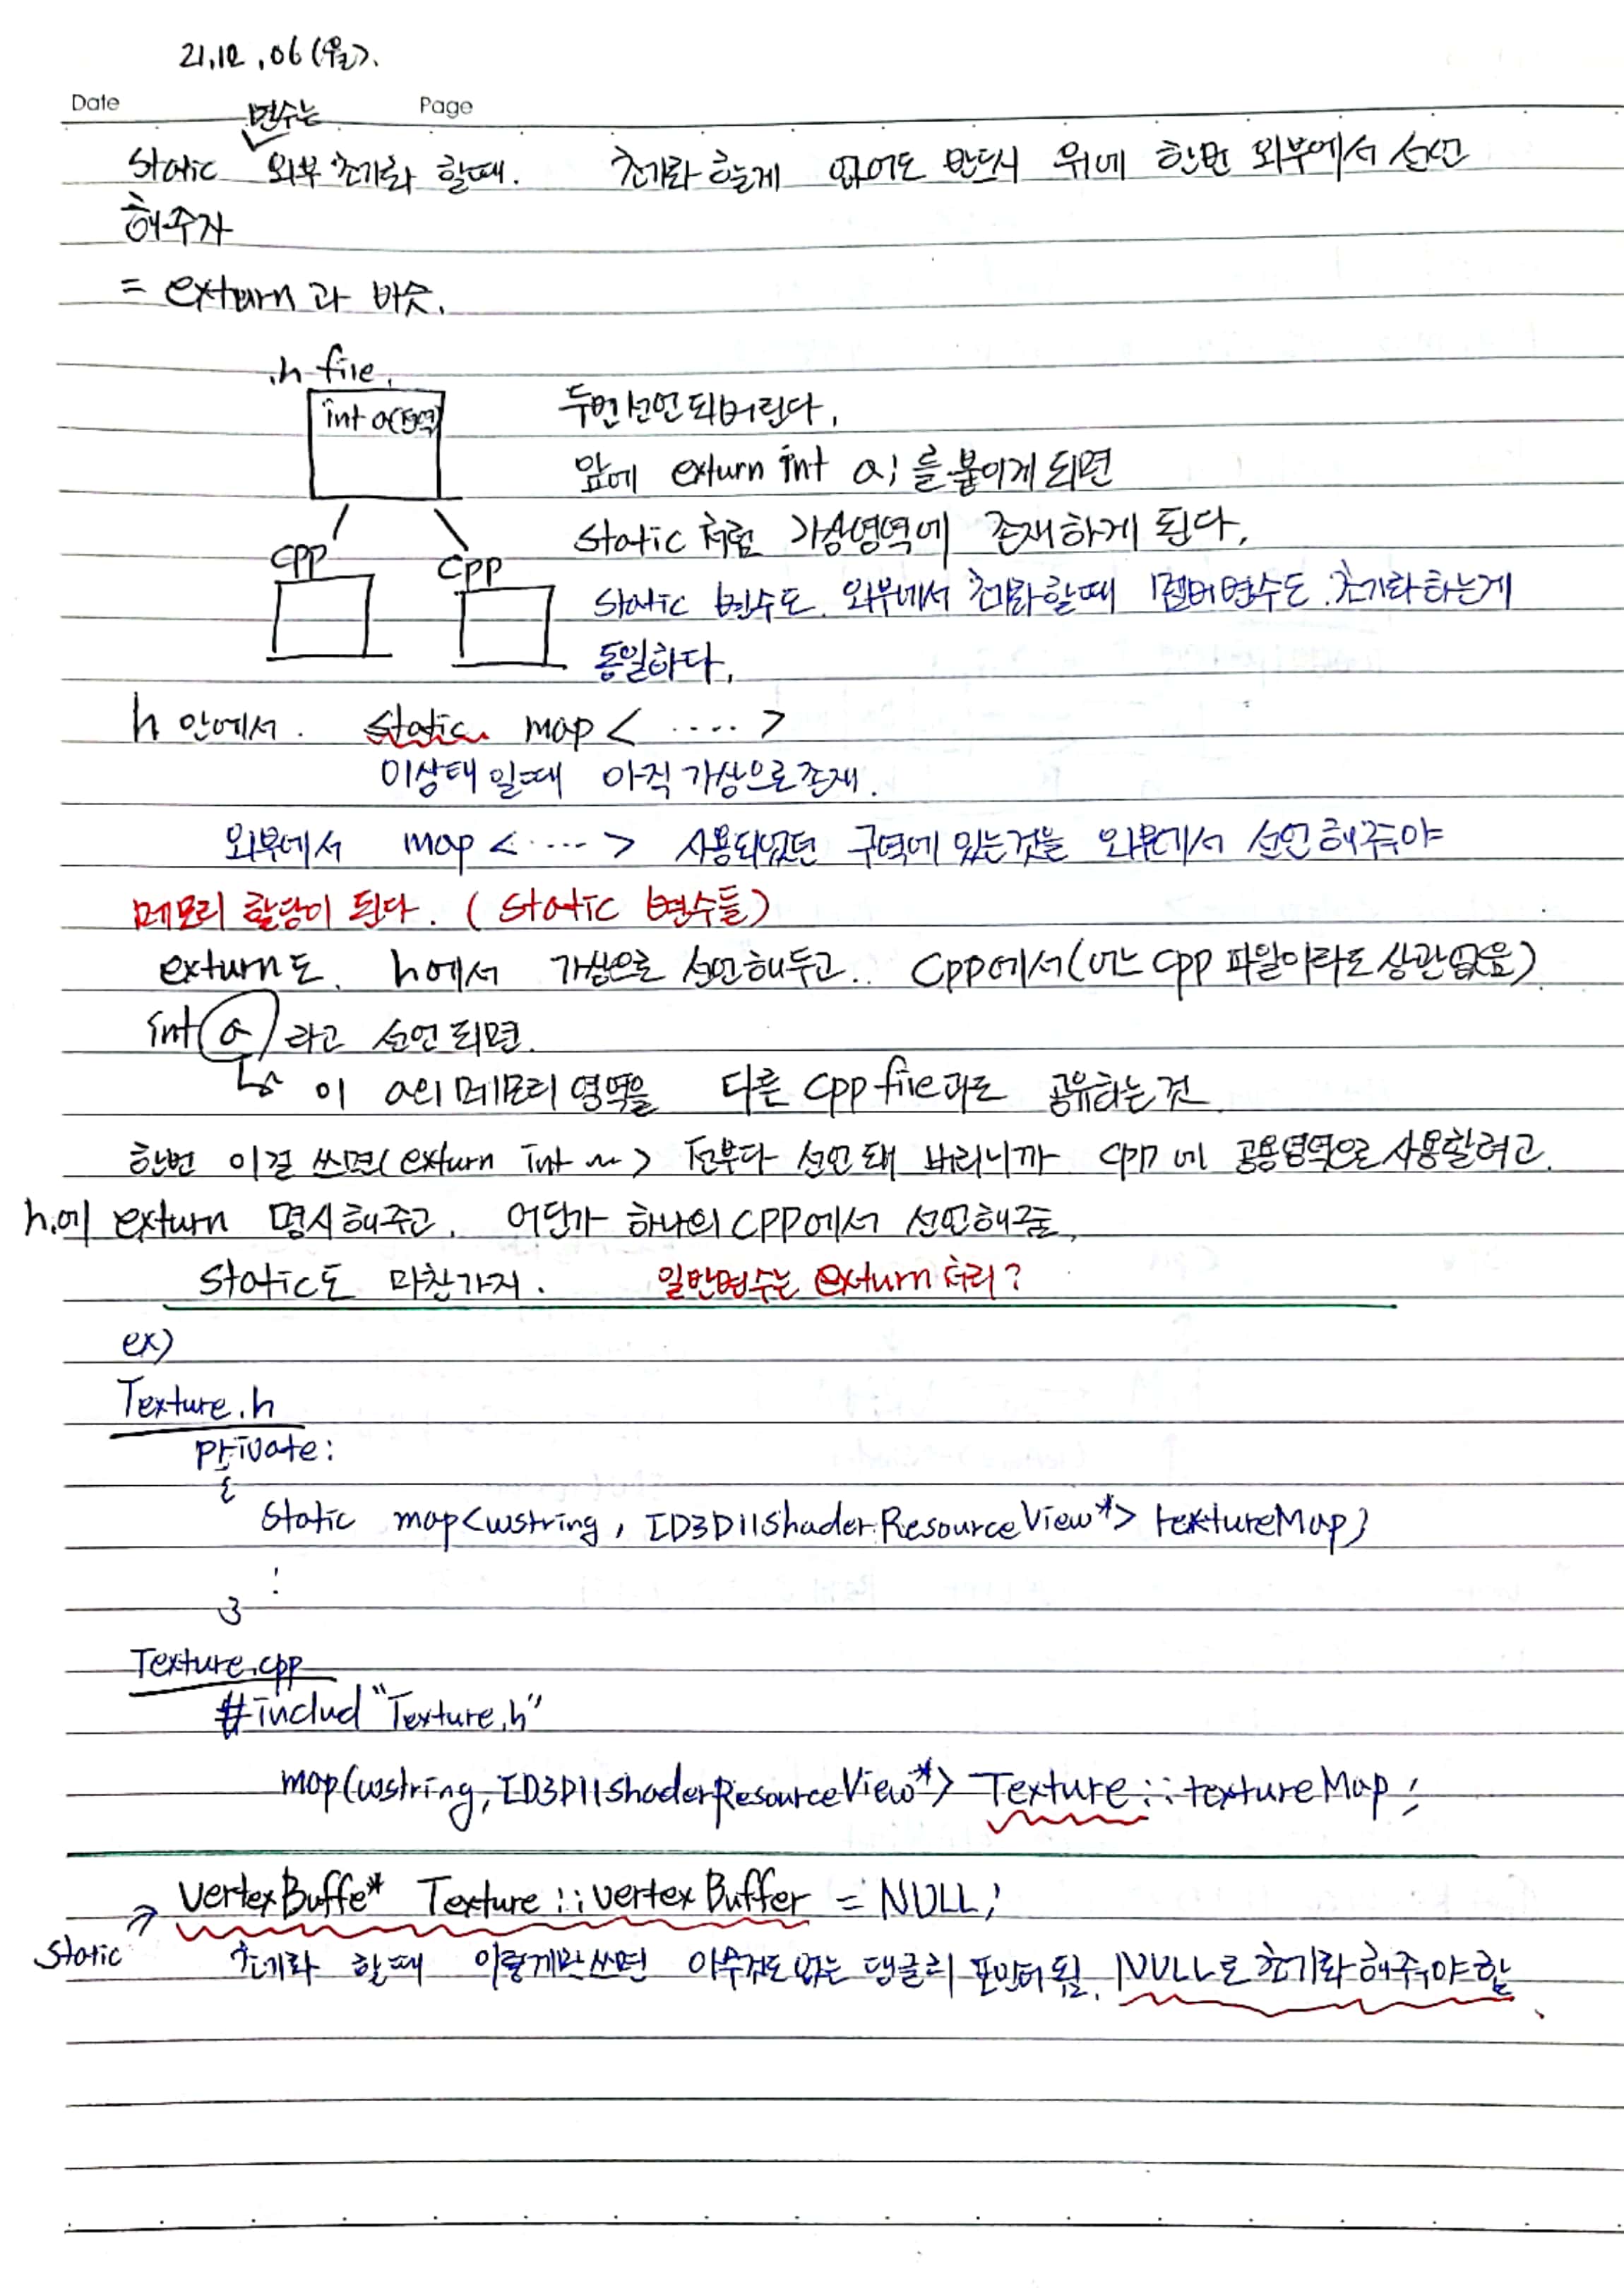 21.12.06(월).
Date Page
변수는
static 외부 초기화 할때. 초기화 하는게 없어도 반드시 위에 한번 외부에서 선언
해주자
= exturn과 비슷.
.h file.
int a(전역)
cpp cpp
두번 선언 되버린다.
앞에 exturn int a; 를 붙이게 되면
static 처럼 가상영역에 존재하게 된다.
static 변수도 외부에서 초기화 할때 멤버변수도 초기화 하는게
동일하다.
h 안에서. static map < ..... >
이상태 일때 아직 가상으로 존재.
외부에서 map < ..... > 사용되었던 구역에 있는것을 외부에서 선언 해주어야
메모리 할당이 된다. (static 변수들)
exturn도. h에서 가상으로 선언해두고.. cpp에서(어느 cpp 파일이라도 상관없음)
int a 라고 선언 되면.
↳ 이 a의 메모리 영역을 다른 cpp file과도 공유하는 것.
한번 이걸 쓰면(exturn int ~) 전부다 선언 돼 버리니까 cpp에 공용영역으로 사용할려고.
h.에 exturn 명시해주고. 어딘가 하나의 cpp에서 선언해줌.
static도 마찬가지. 일반변수는 exturn 처리?
ex)
Texture.h
private:
{
static map<wstring, ID3D11ShaderResourceView*> textureMap;
:
}
Texture.cpp
#includ "Texture.h"
map(wstring, ID3D11ShaderResourceView*> Texture::textureMap;
VertexBuffe* Texture::vertexBuffer = NULL;
static → 초기화 할때 이렇게만 쓰면 아무것도 없는 댕글리 포인터 됨. NULL로 초기화 해주어야 함.